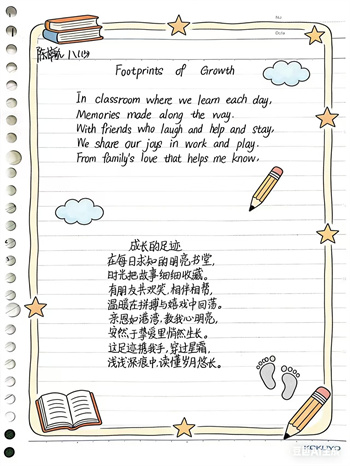 No.
Date
八(13)
Footprints of Growth
In classroom where we learn each day,
Memories made along the way.
With friends who laugh and help and stay,
We share our joys in work and play.
From family's love that helps me know,
成长的足迹
在每日求知的明亮书堂,
时光把故事细细收藏。
有朋友共欢笑,相伴相帮,
温暖在拼搏与嬉戏中回荡。
亲恩如港湾,教我心明亮,
安然于挚爱里悄然生长。
这足迹携我手,穿过星霜,
浅浅深痕中,读懂岁月悠长。
KOKUYO